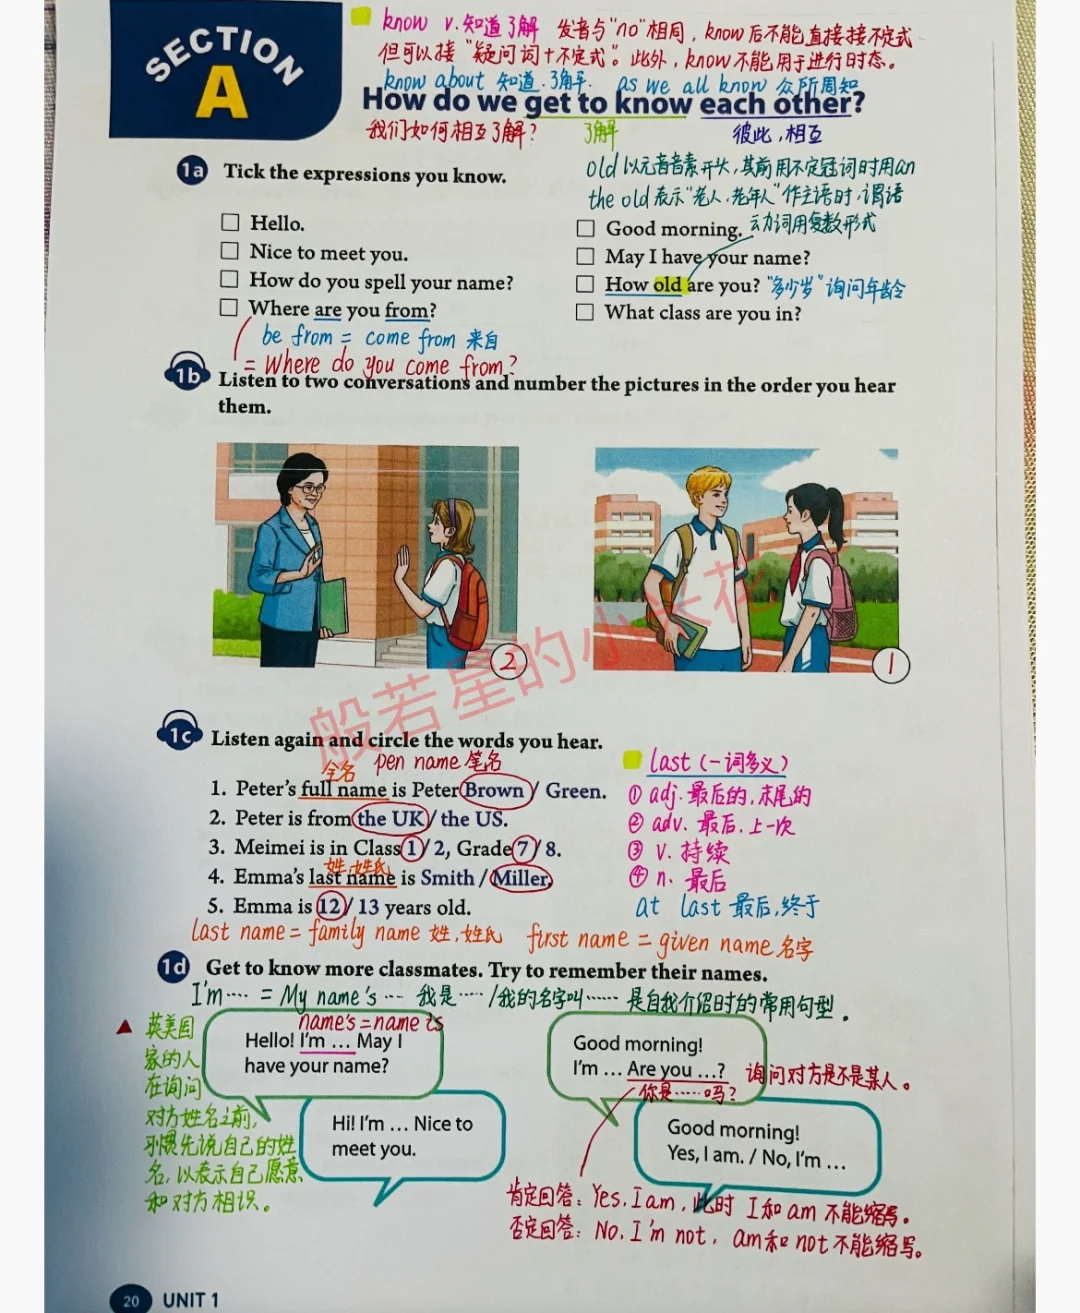 SECTION
A
know v.知道了解 发音与"no"相同, know后不能直接接不定式
但可以接"疑问词+不定式"。此外, know不能用于进行时态。
know about 知道.了解. as we all know 众所周知
How do we get to know each other?
我们如何相互了解? 了解 彼此,相互
old 以元音音素开头,其前用不定冠词时用an
the old 表示"老人,老年人"作主语时,谓语
动词用复数形式
1a Tick the expressions you know.
Hello.
Nice to meet you.
How do you spell your name?
Where are you from?
Good morning.
May I have your name?
How old are you? "多少岁"询问年龄
What class are you in?
be from = come from 来自
= Where do you come from?
1b Listen to two conversations and number the pictures in the order you hear
them.
2
1
般若星的小长花
1c Listen again and circle the words you hear.
全名 pen name 笔名
1. Peter's full name is Peter Brown / Green.
2. Peter is from the UK / the US.
3. Meimei is in Class 1 / 2, Grade 7 / 8.
姓,姓氏
4. Emma's last name is Smith / Miller.
5. Emma is 12 / 13 years old.
last (一词多义)
① adj.最后的,末尾的
② adv.最后.上一次
③ v.持续
④ n.最后
at last 最后,终于
last name = family name 姓,姓氏 first name = given name 名字
1d Get to know more classmates. Try to remember their names.
I'm…. = My name's … 我是…./我的名字叫…… 是自我介绍时的常用句型.
▲ 英美国
家的人
在询问
对方姓名之前,
习惯先说自己的姓
名,以表示自己愿意
和对方相识。
name's = name is
Hello! I'm … May I
have your name?
Hi! I'm … Nice to
meet you.
Good morning!
I'm … Are you …? 询问对方是不是某人。
你是……吗?
Good morning!
Yes, I am. / No, I'm …
肯定回答: Yes, I am, 此时 I和am 不能缩写。
否定回答: No, I'm not, am和not不能缩写。
20 UNIT 1